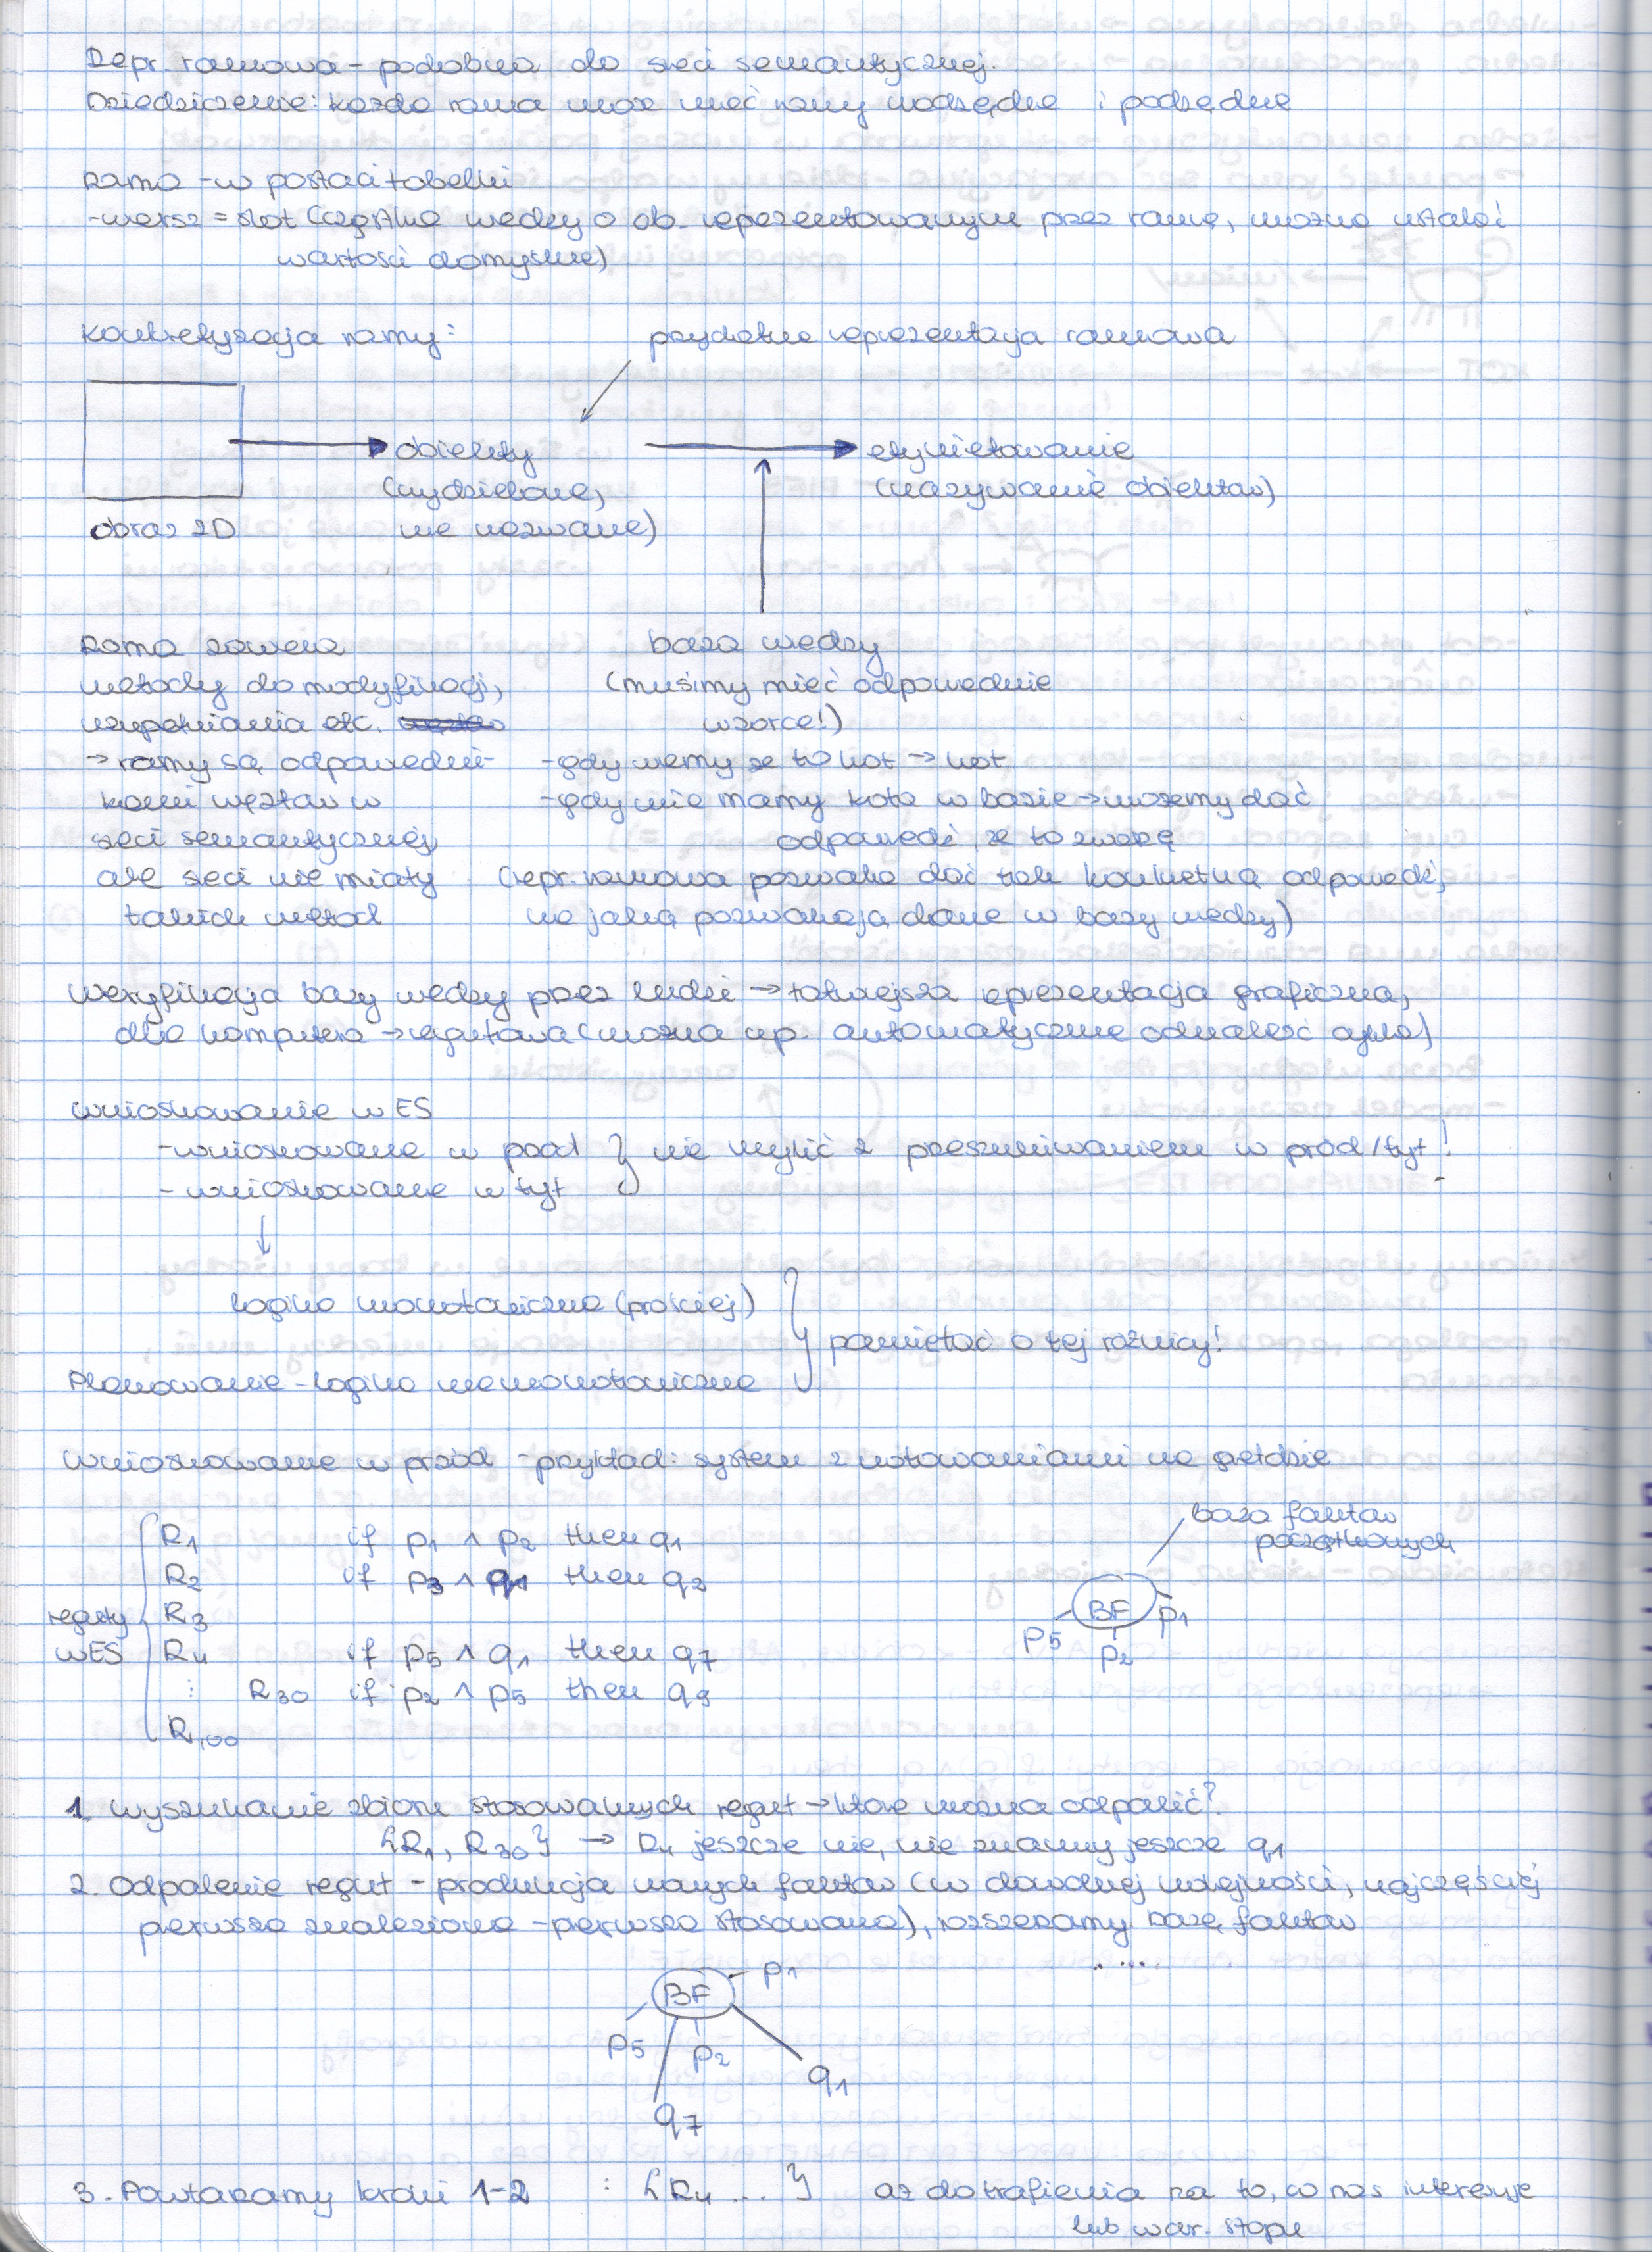 Repr. ramowa – podobna do sieci semantycznej.
Dziedziczenie: każda rama może mieć ramy nadrzędne i podrzędne
Rama – w postaci tabelki
- wiersz = slot (cząstka wiedzy o ob. reprezentowanym przez ramę, można ustalić
wartości domyślne)
konkretyzacja ramy:
przydatna reprezentacja ramowa
obiekty
etykietowanie
(wydzielone,
(nazywanie obiektów)
obraz 2D
nie nazwane)
Rama zawiera
metody do modyfikacji,
uzupełniania etc.
→ ramy są odpowiedni-
kami węzłów w
sieci semantycznej,
ale sieci nie miały
takich metod
baza wiedzy
(musimy mieć odpowiednie
wzorce!)
- gdy wiemy że to kot → kot
- gdy nie mamy kota w bazie → możemy dać
odpowiedź, że to zwierzę
(repr. ramowa pozwala dać tak konkretną odpowiedź,
na jaką pozwalają dane w bazy wiedzy)
Weryfikacja bazy wiedzy przez ludzi → łatwiejsza reprezentacja graficzna,
dla komputera → regułowa (można np. automatycznie odnaleźć cykle)
Wnioskowanie w ES
- wnioskowanie w przód } nie mylić z przeszukiwaniem w przód/tył!
- wnioskowanie w tył
↓
logika monotoniczna (prościej)
} pamiętać o tej różnicy!
Planowanie – logika niemonotoniczna
Wnioskowanie w przód – przykład: system z notowaniami na giełdzie
reguły
w ES
R1 if p1 ∧ p2 then q1
R2 if p3 ∧ q1 then q2
R3
R4 if p5 ∧ q1 then q7
⋮ R30 if p2 ∧ p5 then q9
R100
baza faktów
początkowych
BF
p5 p2 p1
1. Wyszukanie zbioru stosowalnych reguł → które można odpalić?
{R1, R30} → R4 jeszcze nie, nie znamy jeszcze q1
2. Odpalenie reguł – produkcja nowych faktów (w dowolnej kolejności, najczęściej
pierwsza znaleziona – pierwsza stosowana), rozszerzamy bazę faktów
.....
BF p1
p5 p2
q1
q7
3. Powtarzamy kroki 1-2 : {R4 ...} aż do trafienia na to, co nas interesuje
lub war. stopu